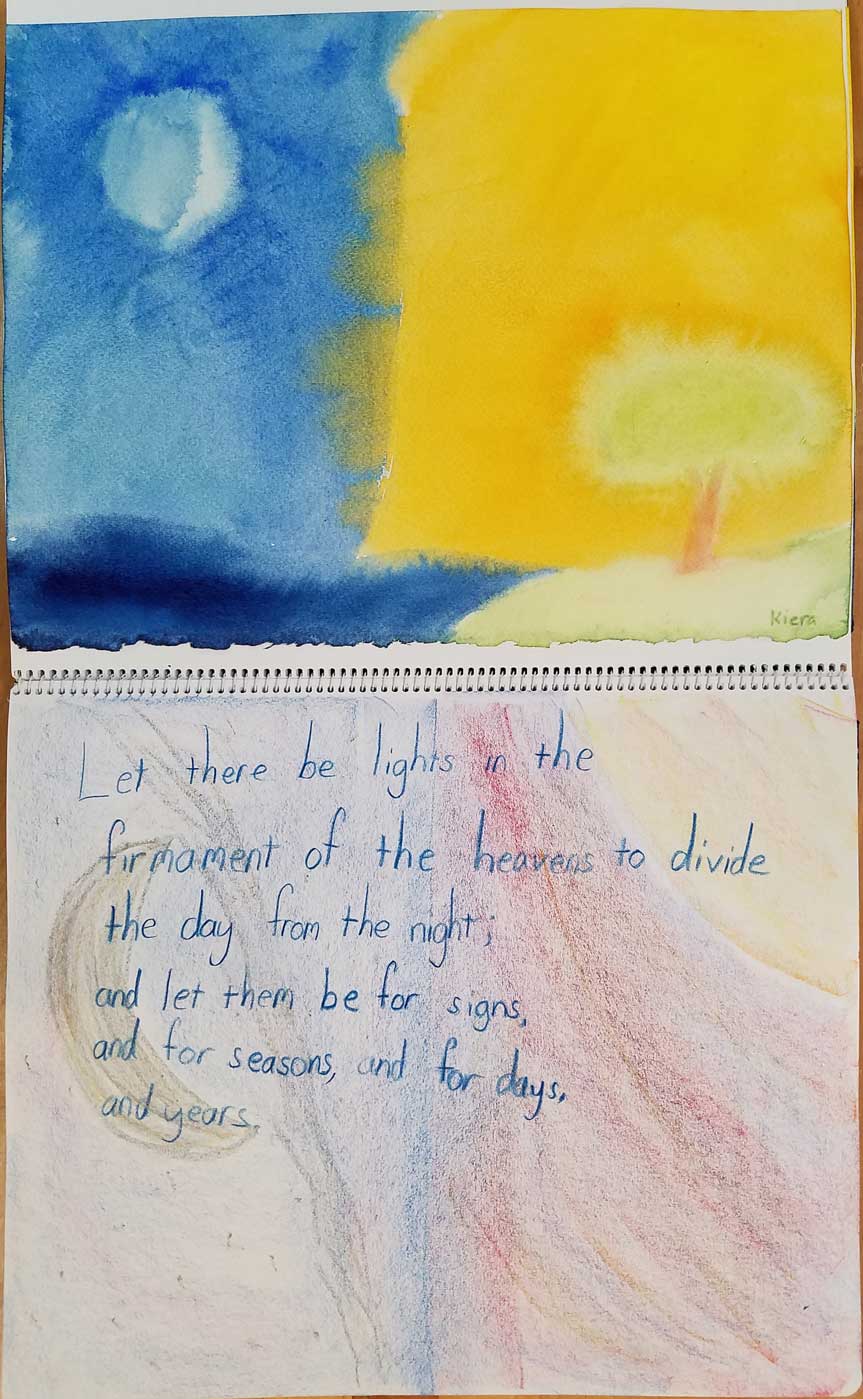 Kiera
Let there be lights in the
firmament of the heavens to divide
the day from the night;
and let them be for signs,
and for seasons, and for days,
and years.